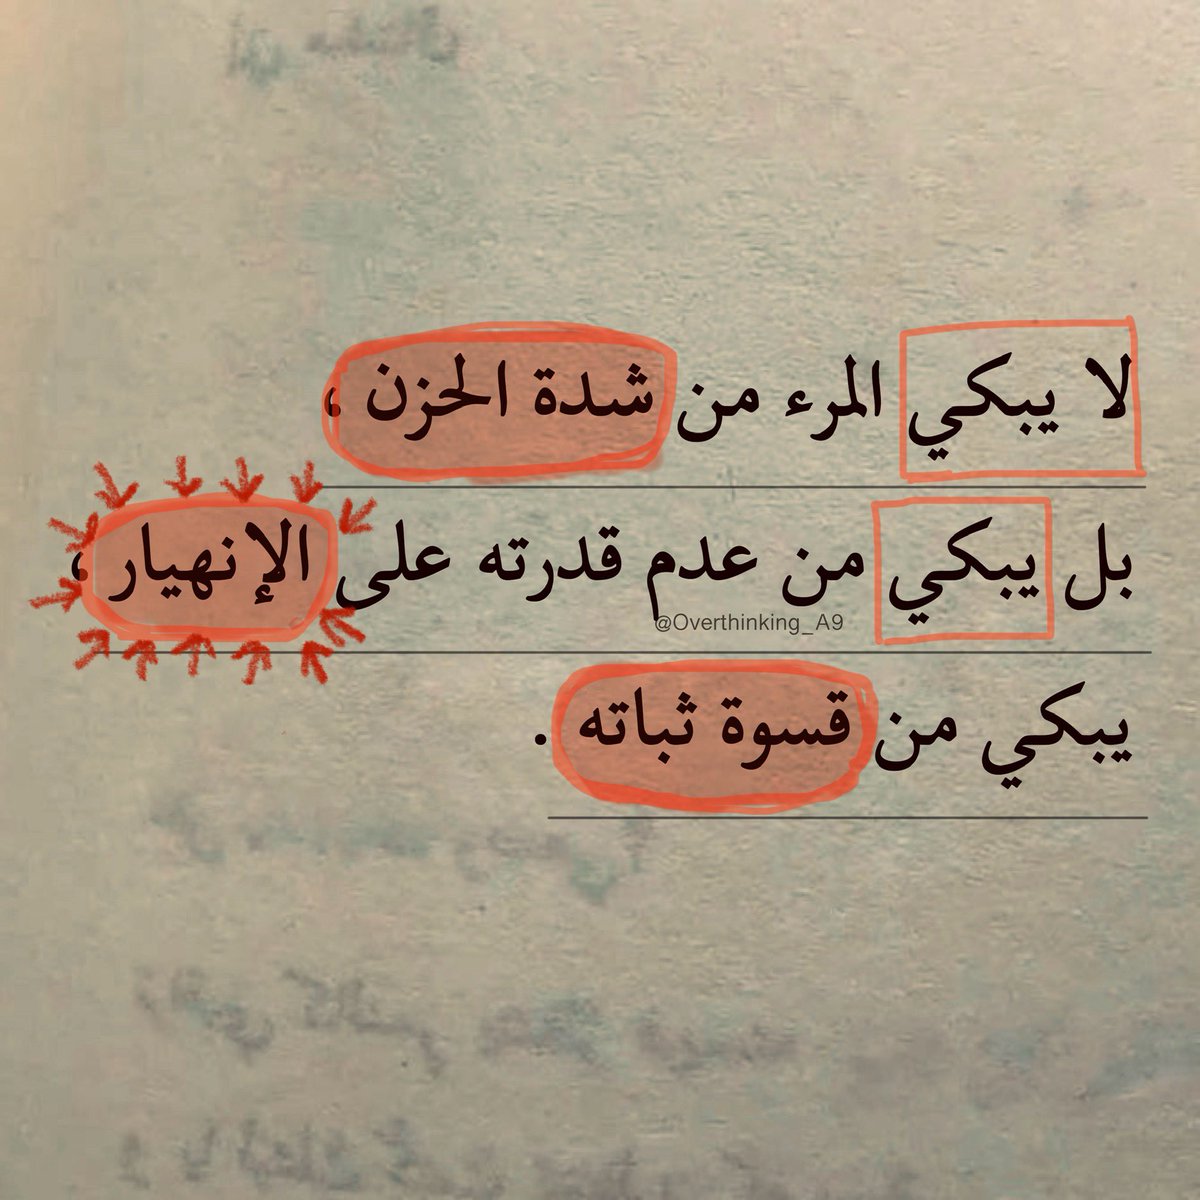 لا يبكي المرء من شدة الحزن ،
بل يبكي من عدم قدرته على الإنهيار ،
@Overthinking_A9
يبكي من قسوة ثباته .